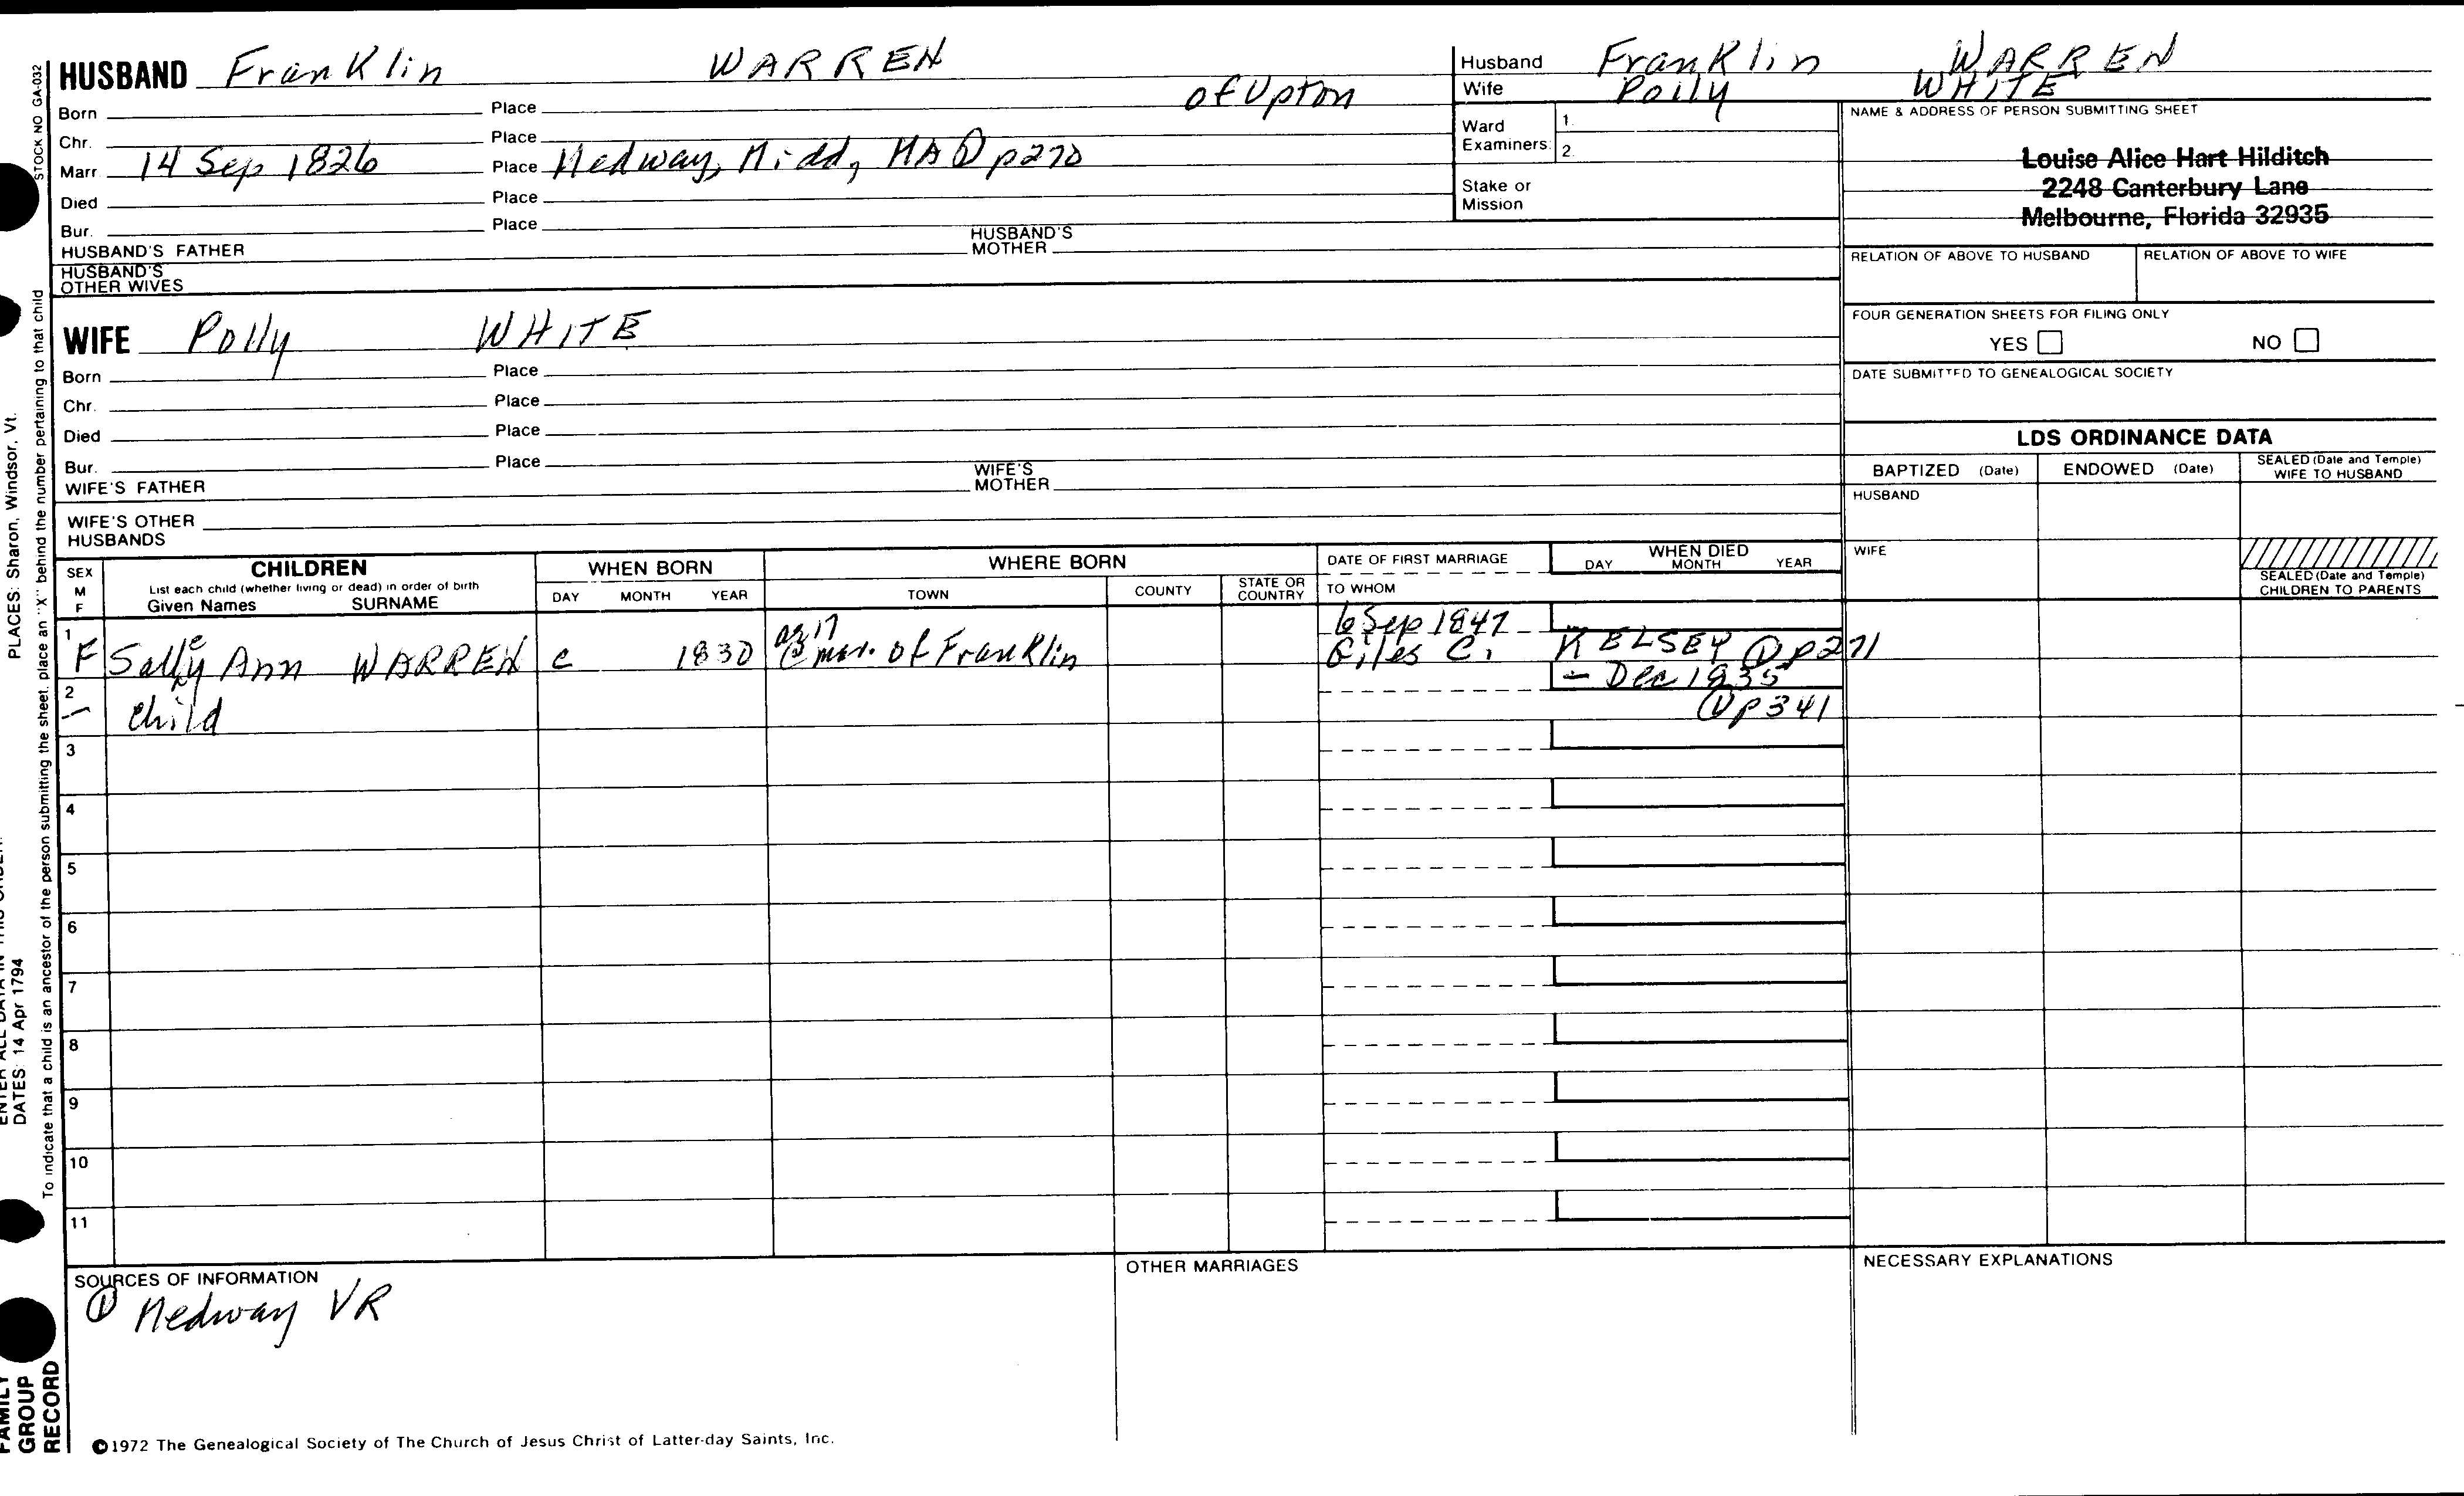 STOCK NO GA-032
HUSBAND Franklin WARREN
of Upton
Born Place
Chr. Place
Marr. 14 Sep 1826 Place Medway, Midd, MA ① p270
Died Place
Bur. Place
HUSBAND'S FATHER HUSBAND'S MOTHER
HUSBAND'S OTHER WIVES
WIFE Polly WHITE
Born Place
Chr. Place
Died Place
Bur. Place
WIFE'S FATHER WIFE'S MOTHER
WIFE'S OTHER HUSBANDS
Husband Franklin WARREN
Wife Polly WHITE
Ward Examiners: 1.
2.
Stake or Mission
NAME & ADDRESS OF PERSON SUBMITTING SHEET
Louise Alice Hart Hilditch
2248 Canterbury Lane
Melbourne, Florida 32935
RELATION OF ABOVE TO HUSBAND RELATION OF ABOVE TO WIFE
FOUR GENERATION SHEETS FOR FILING ONLY
YES NO
DATE SUBMITTED TO GENEALOGICAL SOCIETY
LDS ORDINANCE DATA
BAPTIZED (Date) ENDOWED (Date) SEALED (Date and Temple) WIFE TO HUSBAND
HUSBAND
WIFE
SEALED (Date and Temple) CHILDREN TO PARENTS
SEX M F
CHILDREN
List each child (whether living or dead) in order of birth
Given Names SURNAME
WHEN BORN
DAY MONTH YEAR
WHERE BORN
TOWN COUNTY STATE OR COUNTRY
DATE OF FIRST MARRIAGE
TO WHOM
WHEN DIED
DAY MONTH YEAR
1 F Sally Ann WARREN c 1830 ag 17 @ mar. of Franklin 6 Sep 1847
Giles C. KELSEY ① p271
2 - child - Dec 1835
① p341
3
4
5
6
7
8
9
10
11
SOURCES OF INFORMATION
① Medway VR
OTHER MARRIAGES
NECESSARY EXPLANATIONS
©1972 The Genealogical Society of The Church of Jesus Christ of Latter-day Saints, Inc.
PLACES: Sharon, Windsor, Vt.
DATES: 14 Apr 1794
To indicate that a child is an ancestor of the person submitting the sheet, place an "X" behind the number pertaining to that child
FAMILY
GROUP
RECORD